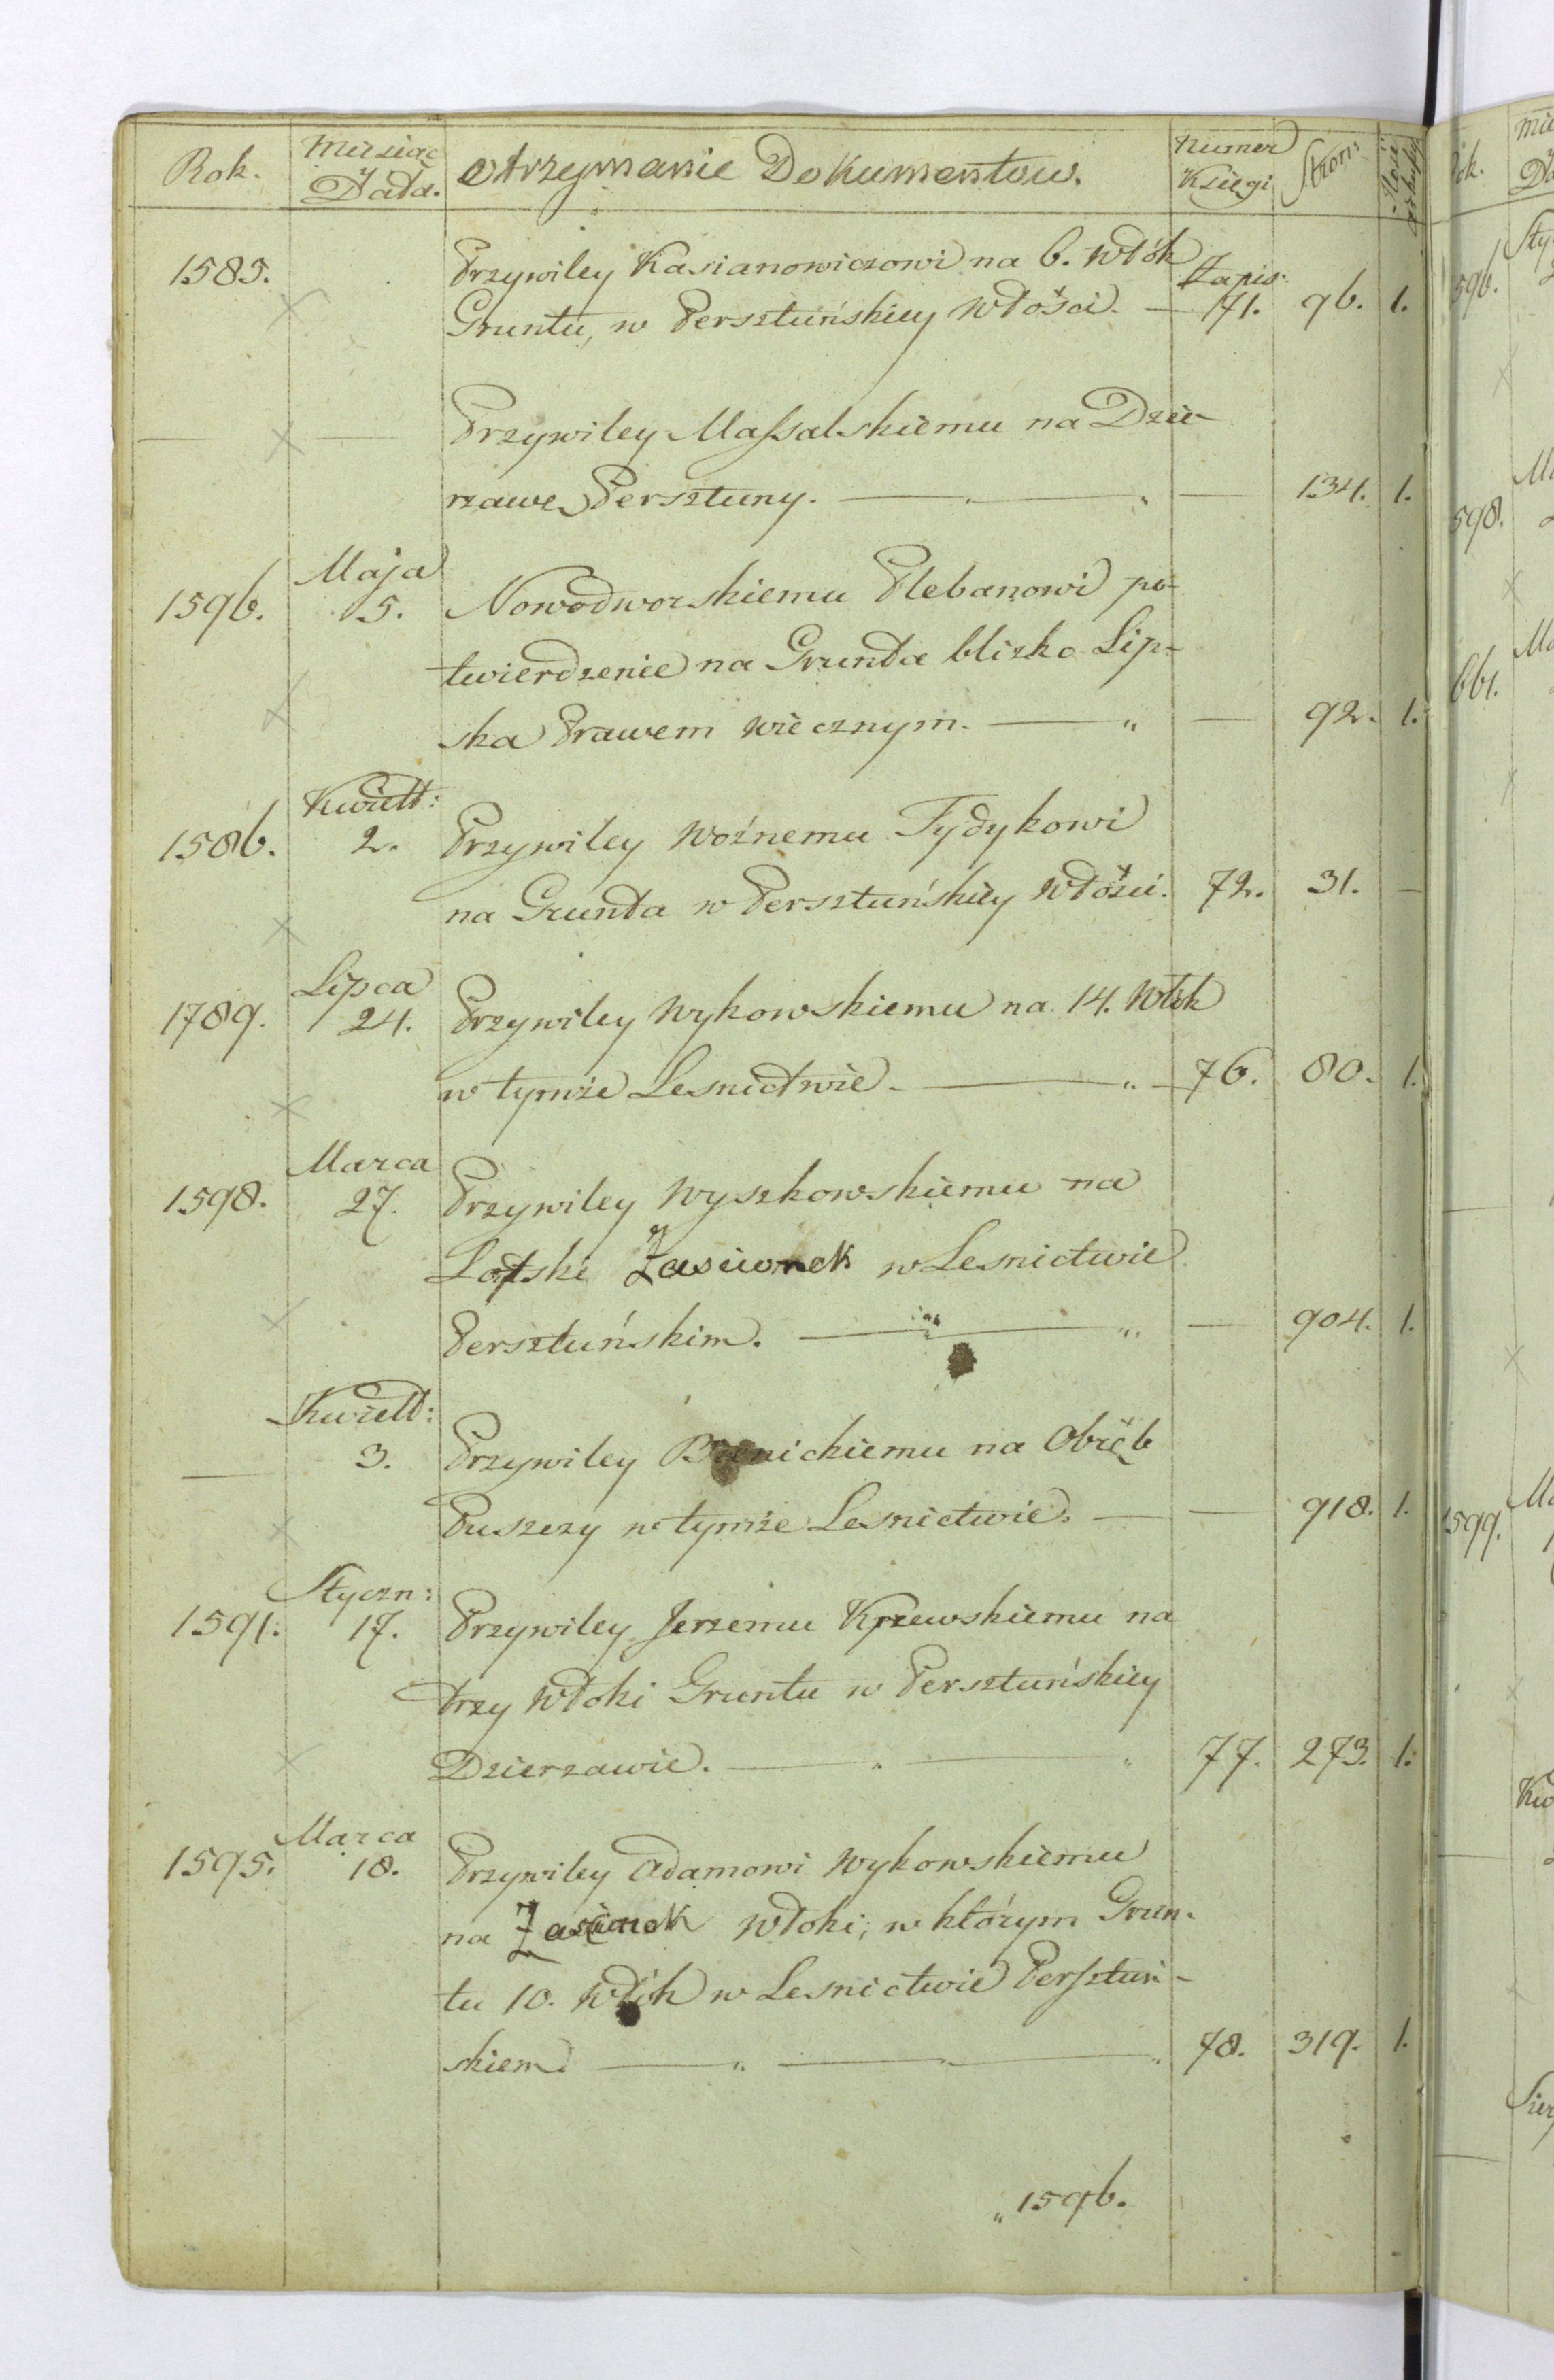 Rok. Miesiąc Data. otrzymanie Dokumentow. Numer Księgi Stron: Ilość
1585. Przywiley Kasianowiczowi na 6. włók Zapis:
Gruntu, w Persztuńskiey Włości. — 71. 96. 1.
— — Przywiley Massalskiemu na Dzie-
rzawę Persztuny. — 134. 1.
Maja
1596. 5. Nowodworskiemu Plebanowi po-
twierdzenie na Grunta blizko Lip-
ska Prawem wiecznym. — " — 92. 1.
Kwiett:
1586. 2. Przywiley Woźnemu Tydykowi
na Grunta w Persztuńskiey Włości. 72. 31. —
Lipca
1789. 24. Przywiley Wykowskiemu na 14. Włók
w tymże Lesnictwie. — " — 76. 80. 1.
Marca
1598. 27. Przywiley Wyszkowskiemu na
Zascianek w Lesnictwie
Persztuńskim. — " — 904. 1.
Kwiett:
— 3. Przywiley na Obręb
Puszczy w tymże Lesnictwie. — — 918. 1.
Styczn:
1591. 17. Przywiley Jerzemu Krzewskiemu na
trzy Włoki Gruntu w Persztuńskiey
Dzierzawie. — " — " 77. 273. 1.
Marca
1595. 18. Przywiley Adamowi Wykowskiemu
na Zascianek Włoki, w którym Grun-
tu 10. Włók w Lesnictwie Persztuń-
skiem — " — " — " 78. 319. 1.
" 1596.